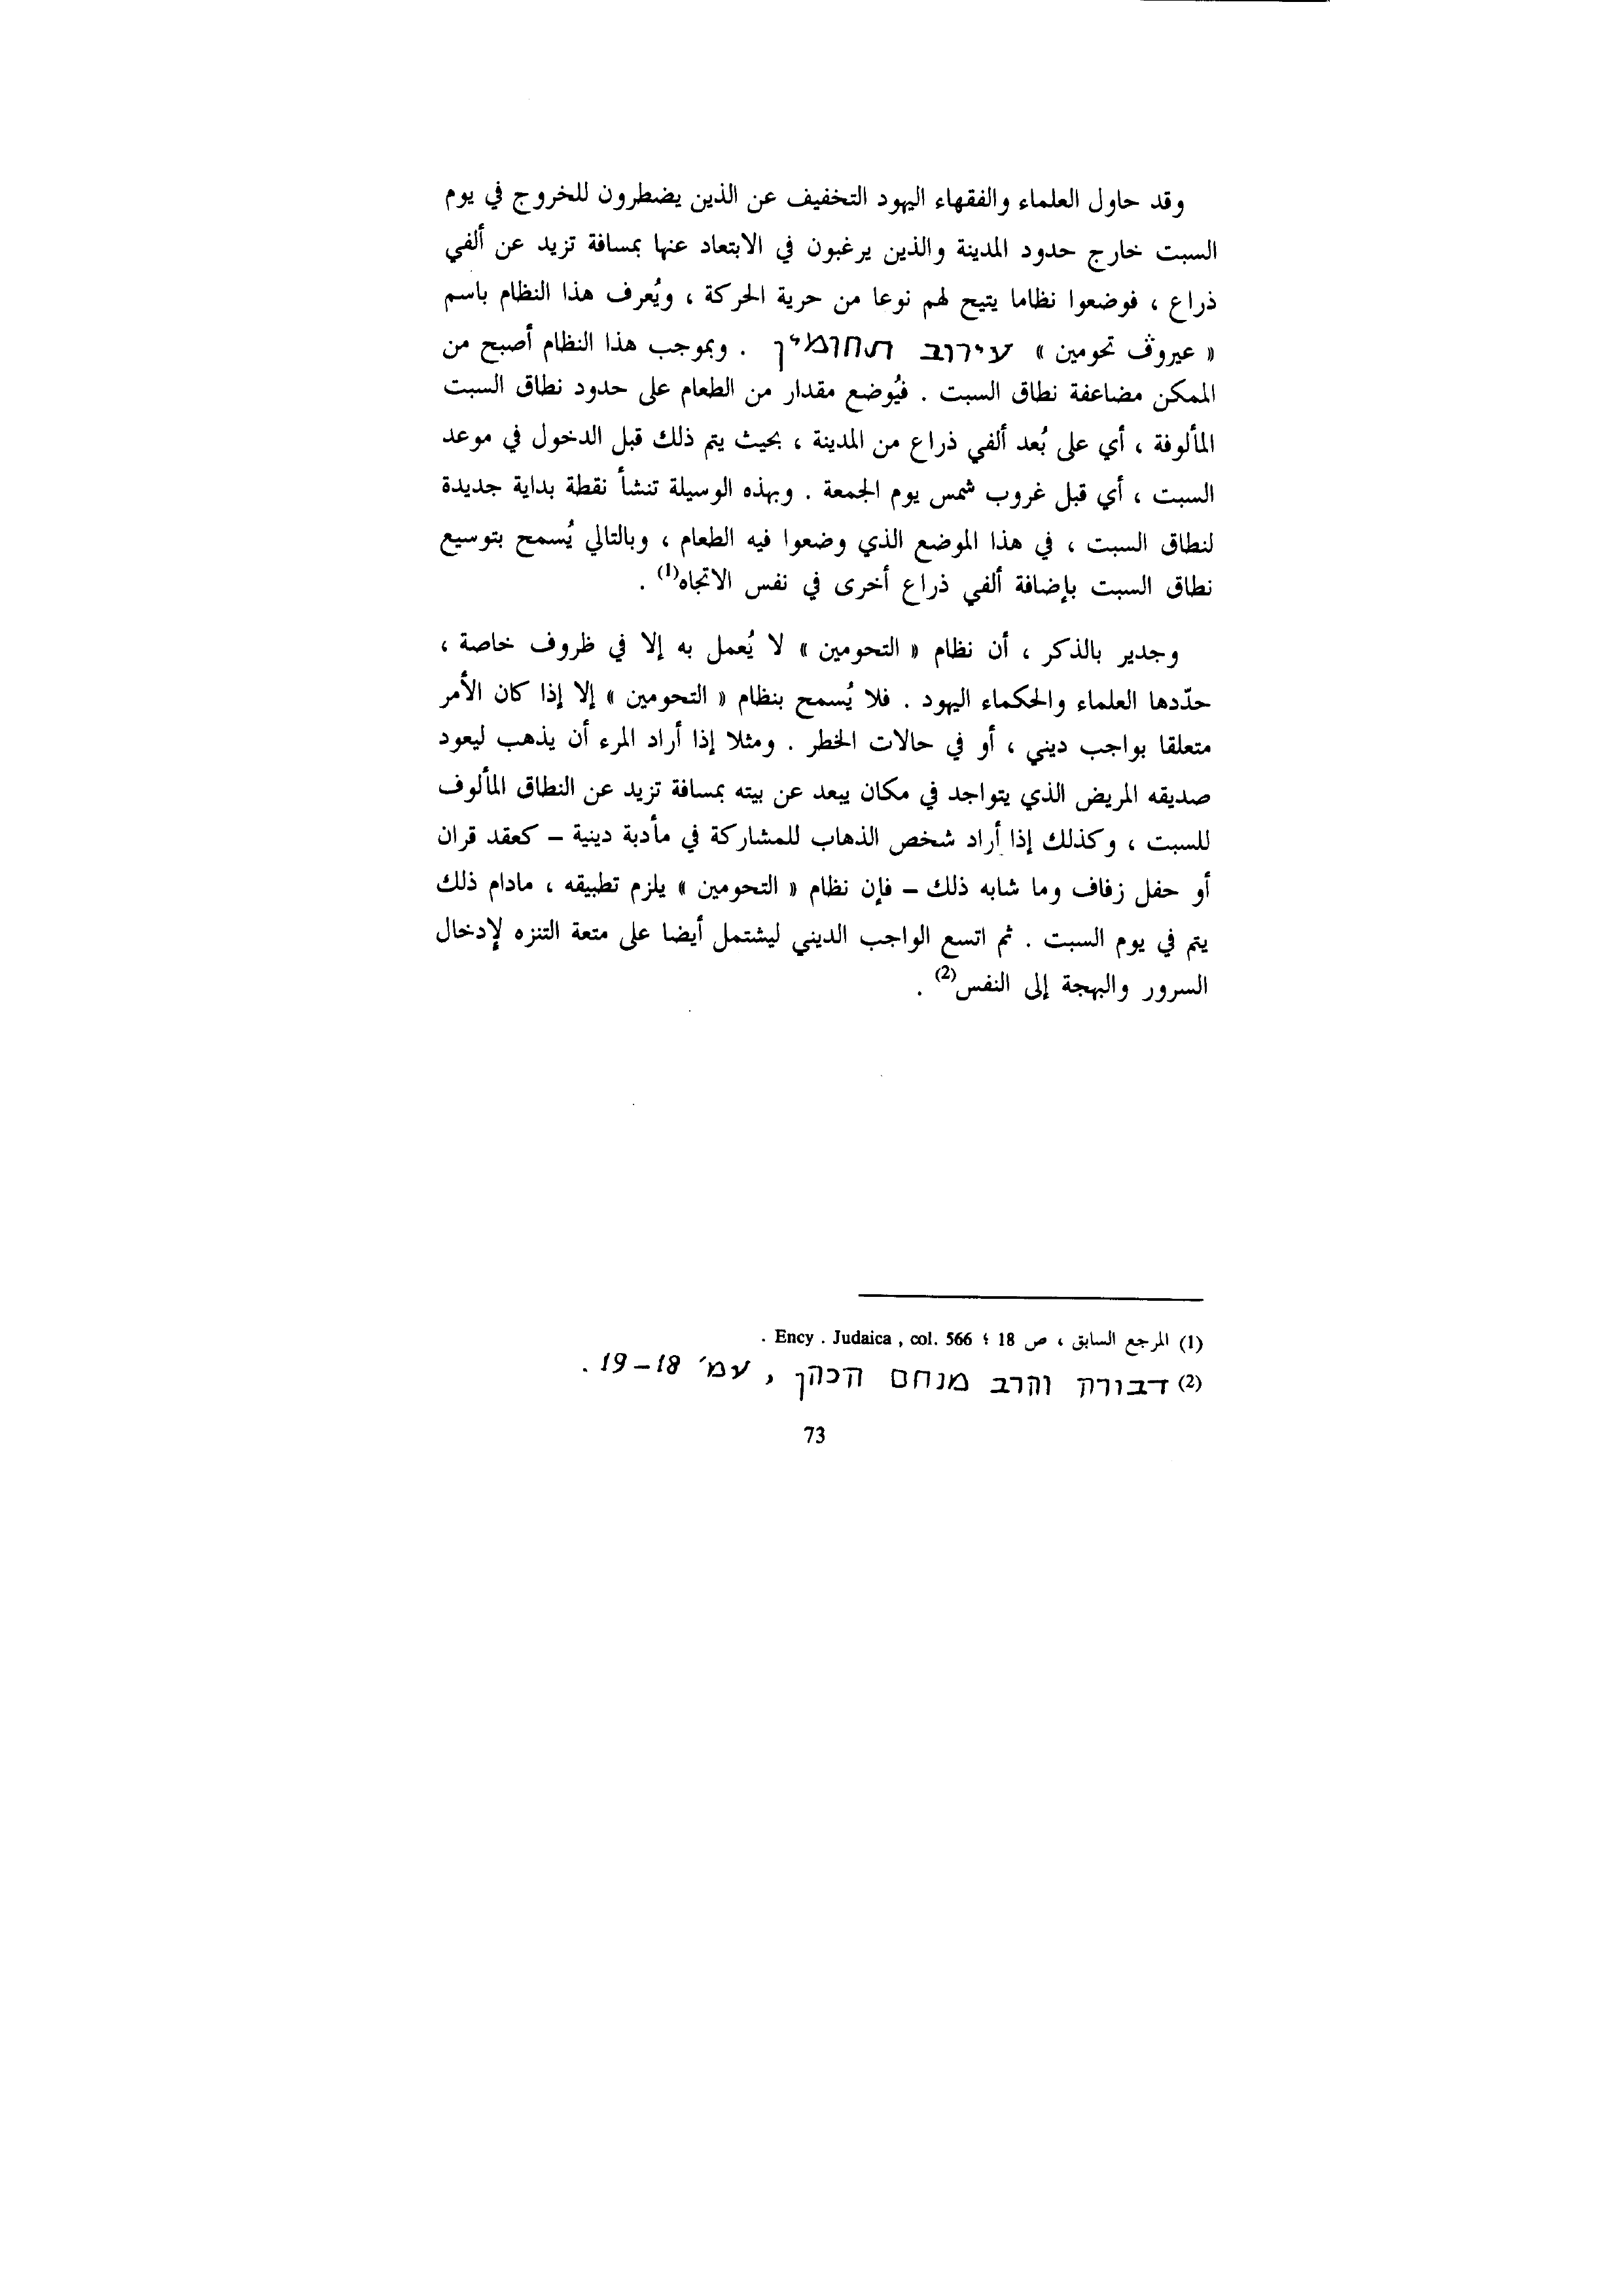 وقد حاول العلماء والفقهاء اليهود التخفيف عن الذين يضطرون للخروج في يوم
السبت خارج حدود المدينة والذين يرغبون في الابتعاد عنها بمسافة تزيد عن ألفي
ذراع ، فوضعوا نظاما يتيح لهم نوعا من حرية الحركة ، ويُعرف هذا النظام باسم
« عيروڤ تحومين » עירוב תחומין . وبموجب هذا النظام أصبح من
الممكن مضاعفة نطاق السبت . فيُوضع مقدار من الطعام على حدود نطاق السبت
المألوفة ، أي على بُعد ألفي ذراع من المدينة ، بحيث يتم ذلك قبل الدخول في موعد
السبت ، أي قبل غروب شمس يوم الجمعة . وبهذه الوسيلة تنشأ نقطة بداية جديدة
لنطاق السبت ، في هذا الموضع الذي وضعوا فيه الطعام ، وبالتالي يُسمح بتوسيع
نطاق السبت بإضافة ألفي ذراع أخرى في نفس الاتجاه(1) .
وجدير بالذكر ، أن نظام « التحومين » لا يُعمل به إلا في ظروف خاصة ،
حدّدها العلماء والحكماء اليهود . فلا يُسمح بنظام « التحومين » إلا إذا كان الأمر
متعلقا بواجب ديني ، أو في حالات الخطر . ومثلا إذا أراد المرء أن يذهب ليعود
صديقه المريض الذي يتواجد في مكان يبعد عن بيته بمسافة تزيد عن النطاق المألوف
للسبت ، وكذلك إذا أراد شخص الذهاب للمشاركة في مأدبة دينية – كعقد قران
أو حفل زفاف وما شابه ذلك – فإن نظام « التحومين » يلزم تطبيقه ، مادام ذلك
يتم في يوم السبت . ثم اتسع الواجب الديني ليشتمل أيضا على متعة التنزه لإدخال
السرور والبهجة إلى النفس(2) .
(1) المرجع السابق ، ص 18 ؛ Ency . Judaica , col. 566 .
(2) דבורה והרב מנחם הכהן , עמ׳ 18–19 .
73